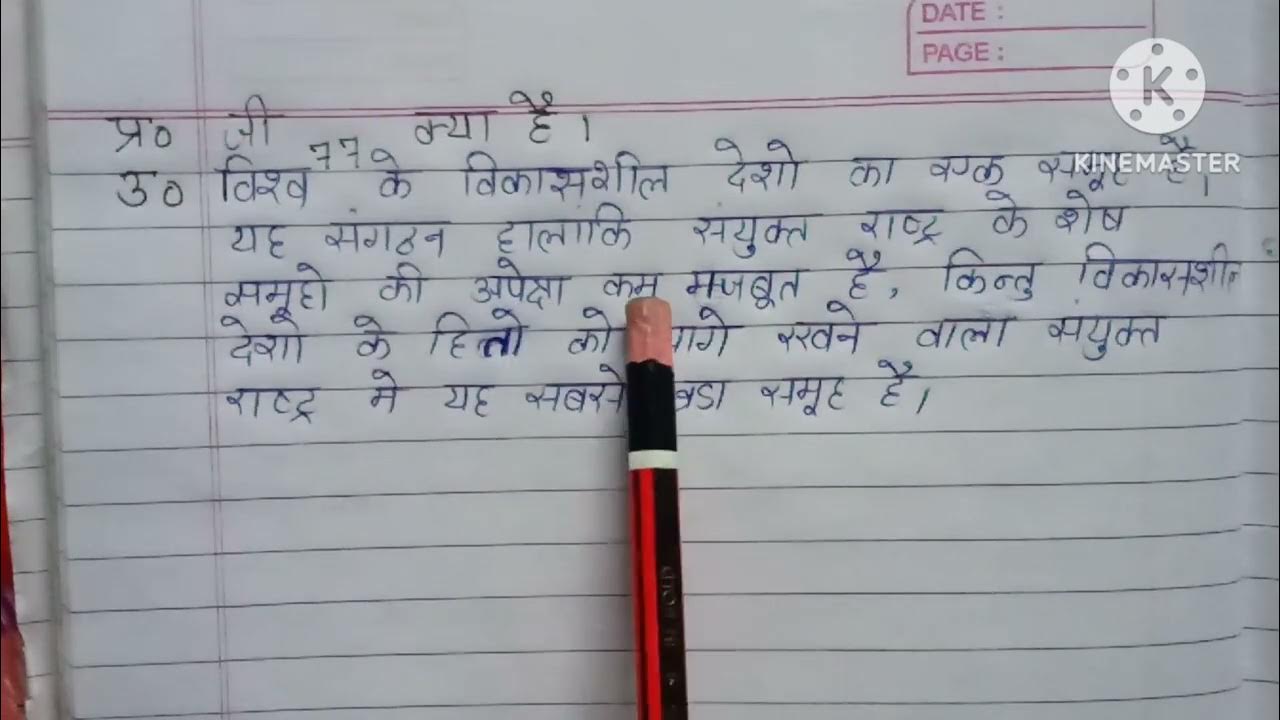 DATE :
PAGE :
KINEMASTER
प्र० जी 77 क्या है।
उ० विश्व के विकासशील देशो का एक समूह है।
यह संगठन हालाकि संयुक्त राष्ट्र के शेष
समूहो की अपेक्षा कम मजबूत है, किन्तु विकासशील
देशो के हितो को आगे रखने वाला संयुक्त
राष्ट्र मे यह सबसे बडा समूह है।